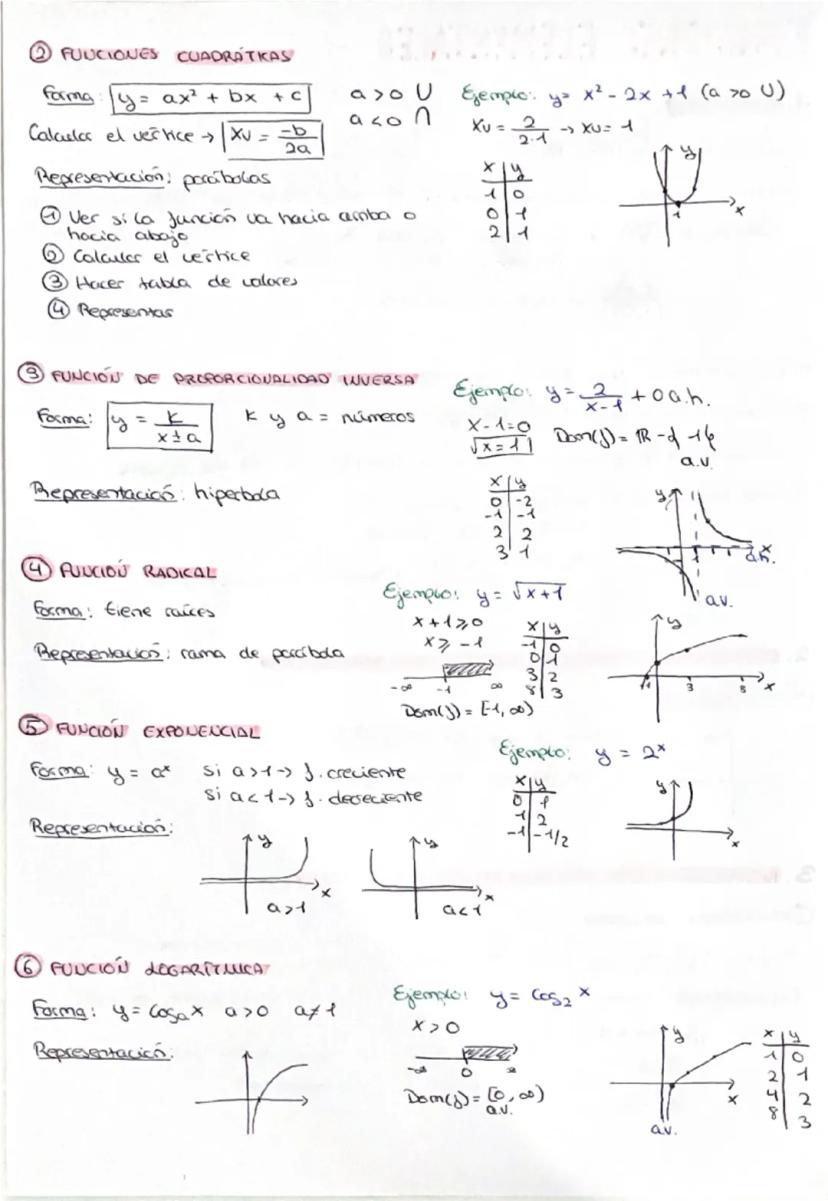 ② FUNCIONES CUADRÁTICAS
Forma: y = ax² + bx + c
a>0 U
a<0 ∩
Calcular el vértice → Xv = -b/2a
Representación: parábolas
① Ver si la función va hacia arriba o
hacia abajo
② Calcular el vértice
③ Hacer tabla de valores
④ Representas
Ejemplo: y= x² - 2x +1 (a >0 U)
Xv = 2/2·1 → Xv= 1
x | y
1 | 0
0 | 1
2 | 1
y
1
x
③ FUNCIÓN DE PROPORCIONALIDAD INVERSA
Forma: y = K/x±a
K y a = números
Representación: hipérbola
Ejemplo: y= 2/x-1 + 0 a.h.
x-1=0
x=1
Dom(f)= R - {1}
a.v.
x | y
0 | -2
-1 | -1
2 | 2
3 | 1
y
1
x
a.h.
a.v.
④ FUNCIÓN RADICAL
Forma: tiene raíces
Representación: rama de parábola
Ejemplo: y= √x+1
x+1⩾0
x⩾ -1
-∞ -1 ∞
Dom(f) = [-1, ∞)
x | y
-1 | 0
0 | 1
3 | 2
8 | 3
y
-1 3 8 x
⑤ FUNCIÓN EXPONENCIAL
Forma: y = aˣ si a>1 -> f. creciente
si a<1 -> f. dececiente
Representación:
y
x
a>1
y
x
a<1
Ejemplo: y = 2ˣ
x | y
0 | 1
1 | 2
-1 | -1/2
y
x
⑥ FUNCIÓN LOGARÍTMICA
Forma: y= logₐx a>0 a≠1
Representación:
Ejemplo: y= log₂ x
x>0
-∞ 0 ∞
Dom(f)= [0, ∞)
a.v.
y
x
a.v.
x | y
1 | 0
2 | 1
4 | 2
8 | 3